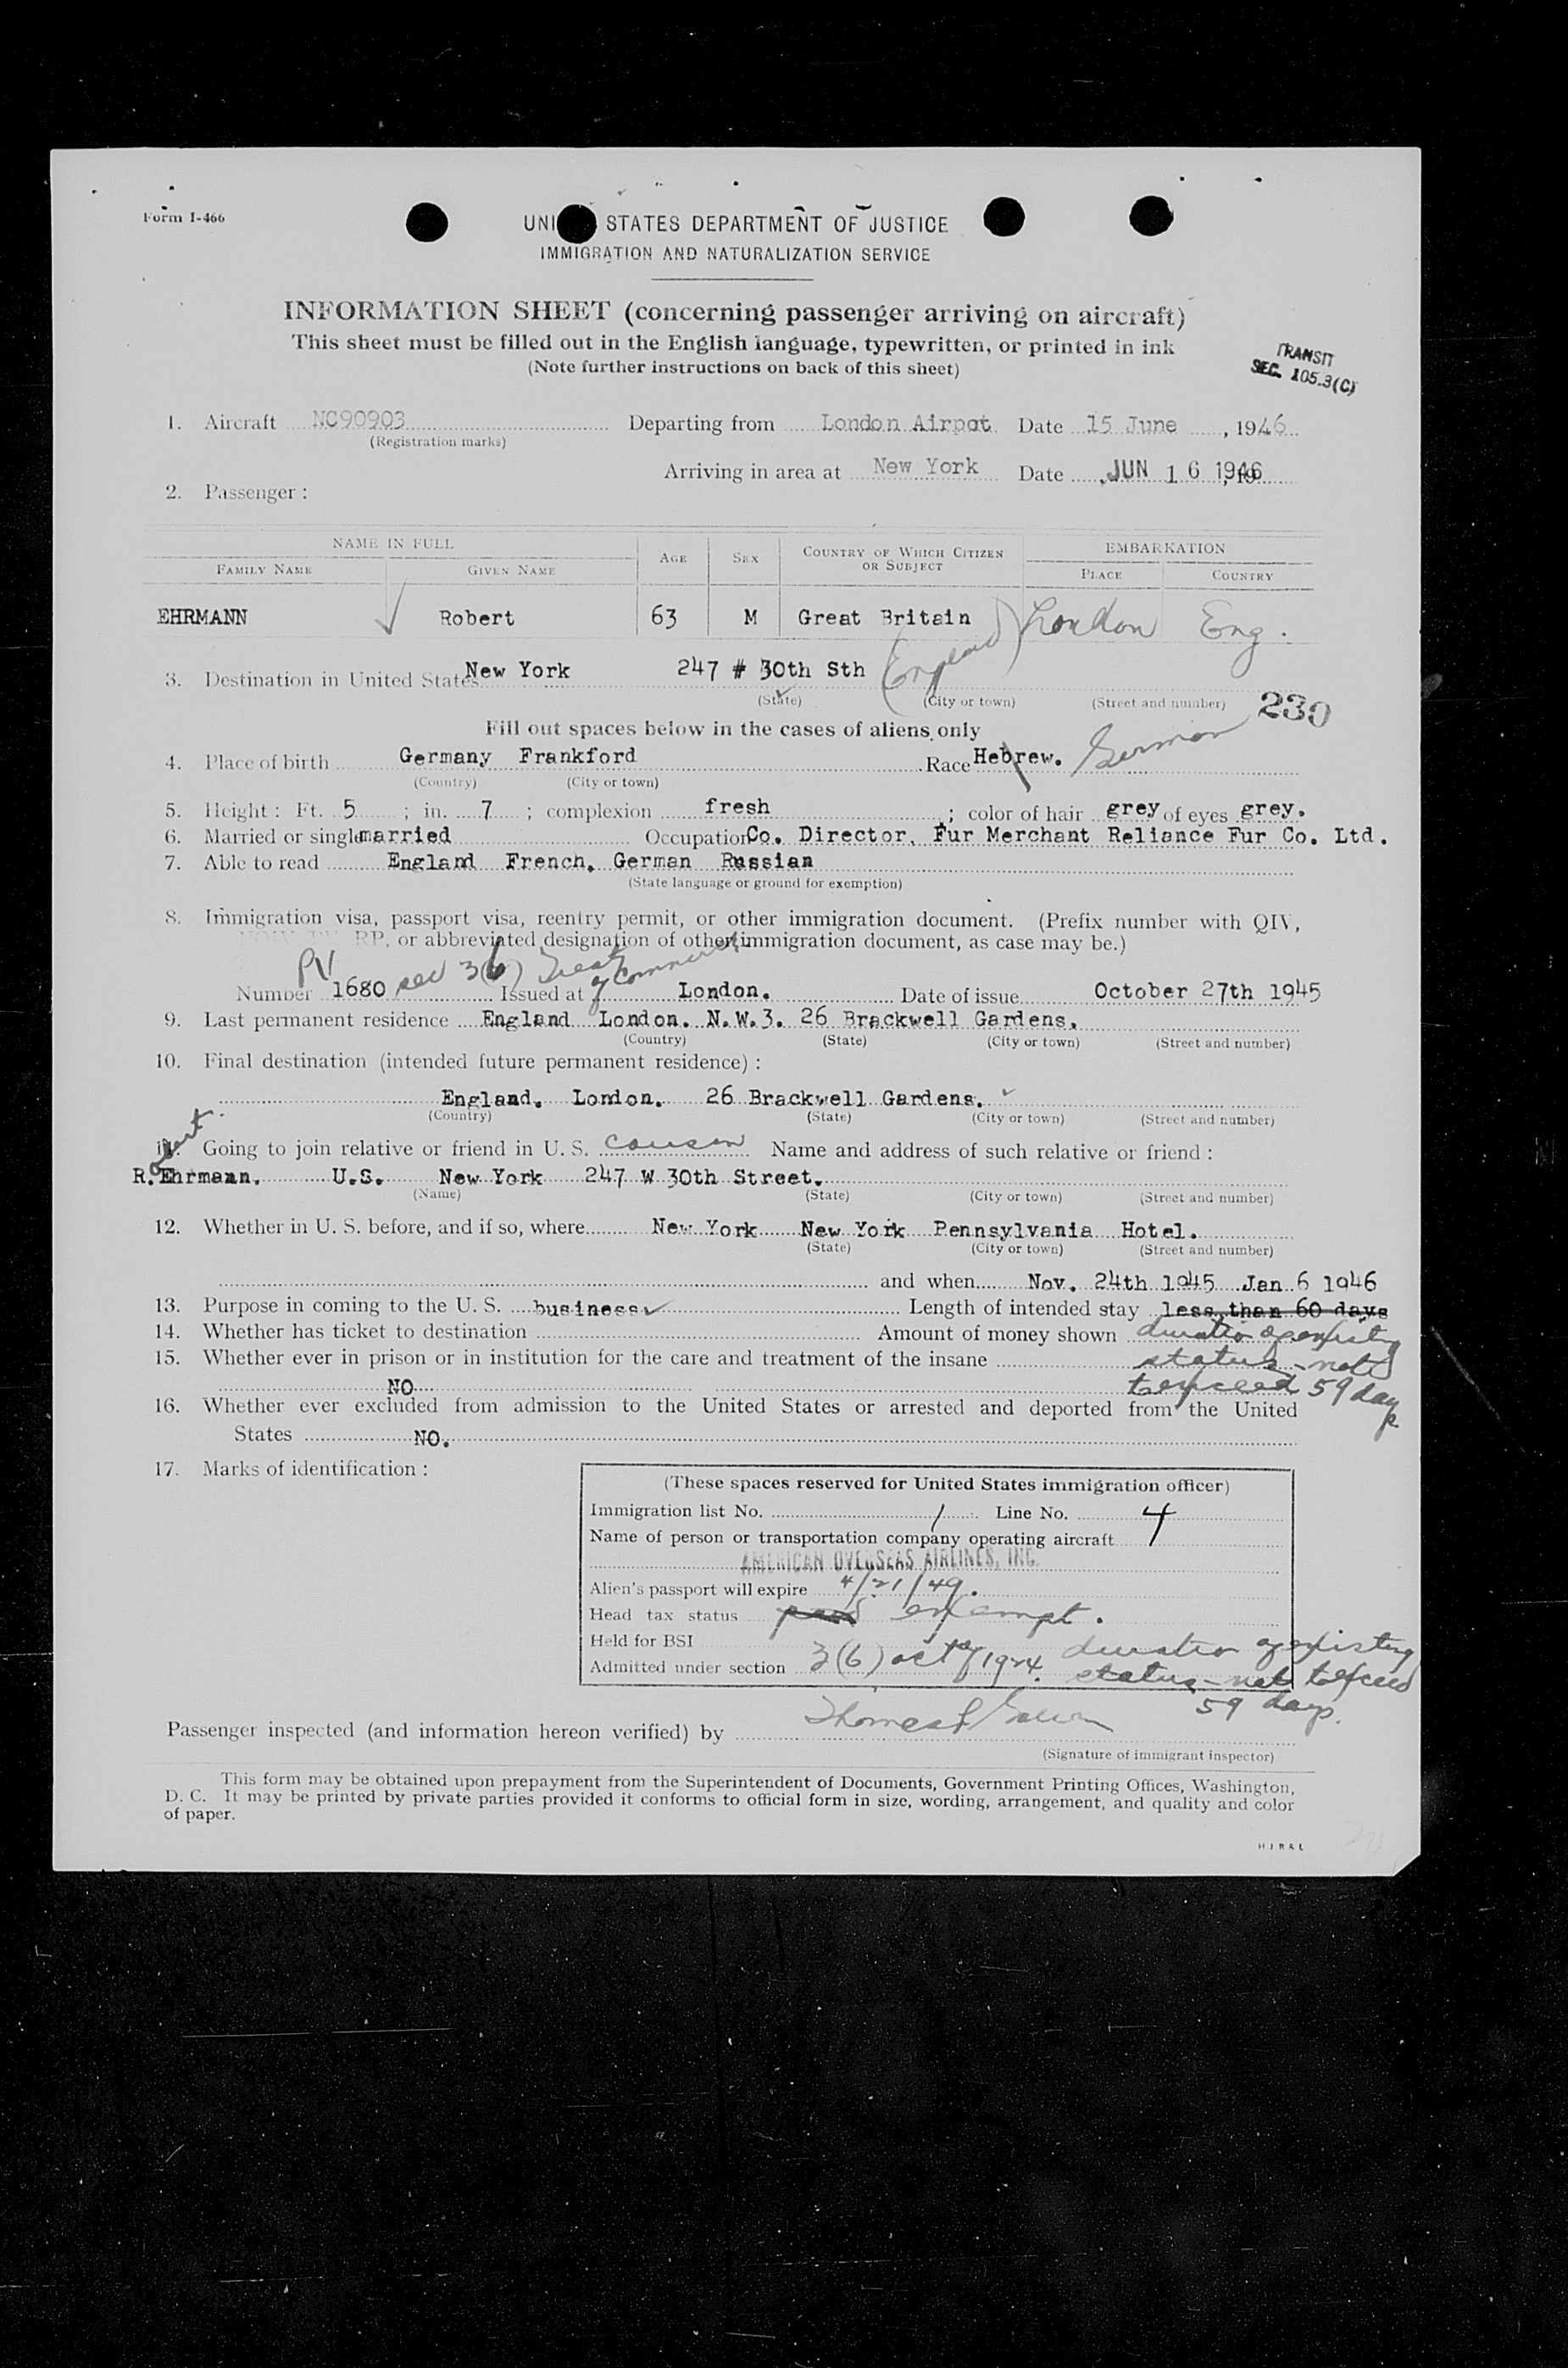 Form I-466
UNI STATES DEPARTMENT OF JUSTICE
IMMIGRATION AND NATURALIZATION SERVICE
INFORMATION SHEET (concerning passenger arriving on aircraft)
This sheet must be filled out in the English language, typewritten, or printed in ink
(Note further instructions on back of this sheet)
TRANSIT
SEC. 105.3(C)
1. Aircraft NC90903 Departing from London Airpot Date 15 June, 1946
(Registration marks)
Arriving in area at New York Date JUN 16 1946, 19
2. Passenger :
NAME IN FULL AGE SEX COUNTRY OF WHICH CITIZEN OR SUBJECT EMBARKATION
FAMILY NAME GIVEN NAME PLACE COUNTRY
EHRMANN Robert 63 M Great Britain London Eng.
(England)
3. Destination in United States New York 247 # 30th Sth
(State) (City or town) (Street and number) 230
Fill out spaces below in the cases of aliens only
4. Place of birth Germany Frankford Race Hebrew. German
(Country) (City or town)
5. Height : Ft. 5 ; in. 7 ; complexion fresh ; color of hair grey of eyes grey.
6. Married or single married Occupation Co. Director, Fur Merchant Reliance Fur Co. Ltd.
7. Able to read England French, German Russian
(State language or ground for exemption)
8. Immigration visa, passport visa, reentry permit, or other immigration document. (Prefix number with QIV,
RP, or abbreviated designation of other immigration document, as case may be.)
PV sec 3(6) Treaty of Commerce
Number 1680 Issued at London. Date of issue October 27th 1945
9. Last permanent residence England London. N.W.3. 26 Brackwell Gardens.
(Country) (State) (City or town) (Street and number)
10. Final destination (intended future permanent residence) :
England. London. 26 Brackwell Gardens.
(Country) (State) (City or town) (Street and number)
11. Going to join relative or friend in U. S. cousin Name and address of such relative or friend :
Robert
R. Ehrmann. U.S. New York 247 W 30th Street.
(Name) (State) (City or town) (Street and number)
12. Whether in U. S. before, and if so, where New York New York Pennsylvania Hotel.
(State) (City or town) (Street and number)
and when Nov. 24th 1945 Jan 6 1946
13. Purpose in coming to the U. S. business Length of intended stay less than 60 days
14. Whether has ticket to destination Amount of money shown duration of existing
15. Whether ever in prison or in institution for the care and treatment of the insane status - not
NO to exceed 59 days
16. Whether ever excluded from admission to the United States or arrested and deported from the United
States NO.
17. Marks of identification :
(These spaces reserved for United States immigration officer)
Immigration list No. 1 Line No. 4
Name of person or transportation company operating aircraft
AMERICAN OVERSEAS AIRLINES, INC.
Alien's passport will expire 4/21/49.
Head tax status paid exempt.
Held for BSI
Admitted under section 3(6) act of 1924. duration of existing
status - not to exceed
59 days.
Passenger inspected (and information hereon verified) by Thomas
(Signature of immigrant inspector)
This form may be obtained upon prepayment from the Superintendent of Documents, Government Printing Offices, Washington,
D. C. It may be printed by private parties provided it conforms to official form in size, wording, arrangement, and quality and color
of paper.
H J R & L